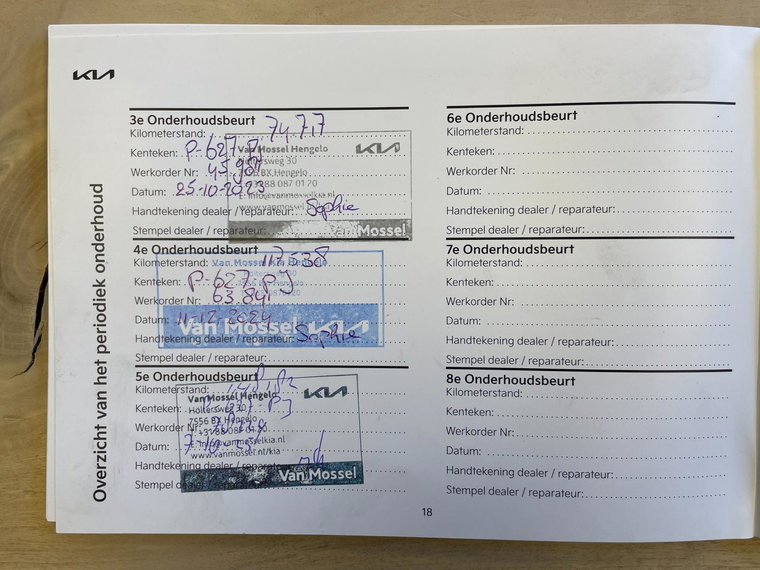 KIA
Overzicht van het periodiek onderhoud
3e Onderhoudsbeurt
Kilometerstand: 74.717
Kenteken: P-627-PJ
Werkorder Nr:
Datum: 25-10-2023
Handtekening dealer / reparateur: Sophie
Stempel dealer / reparateur:
Van Mossel Hengelo
KIA
30
7556 BX Hengelo
+31 88 087 01 20
info@vanmosselkia.nl
www.vanmossel
Van Mossel
4e Onderhoudsbeurt
Kilometerstand: 117.538
Kenteken: P-627-PJ
Werkorder Nr: 63.841
Datum: 11-12-2024
Handtekening dealer / reparateur: Sophie
Stempel dealer / reparateur:
Van Mossel Kia Hengelo
Van Mossel KIA
5e Onderhoudsbeurt
Kilometerstand:
Kenteken:
Werkorder Nr:
Datum:
Handtekening dealer / reparateur:
Stempel dealer / reparateur:
Van Mossel Hengelo
KIA
Hollersweg 30
7556 BX Hengelo
T +31 88 087 01 20
E. info@vanmosselkia.nl
www.vanmossel.nl/kia
Van Mossel
6e Onderhoudsbeurt
Kilometerstand:
Kenteken:
Werkorder Nr:
Datum:
Handtekening dealer / reparateur:
Stempel dealer / reparateur:
7e Onderhoudsbeurt
Kilometerstand:
Kenteken:
Werkorder Nr:
Datum:
Handtekening dealer / reparateur:
Stempel dealer / reparateur:
8e Onderhoudsbeurt
Kilometerstand:
Kenteken:
Werkorder Nr:
Datum:
Handtekening dealer / reparateur:
Stempel dealer / reparateur:
18